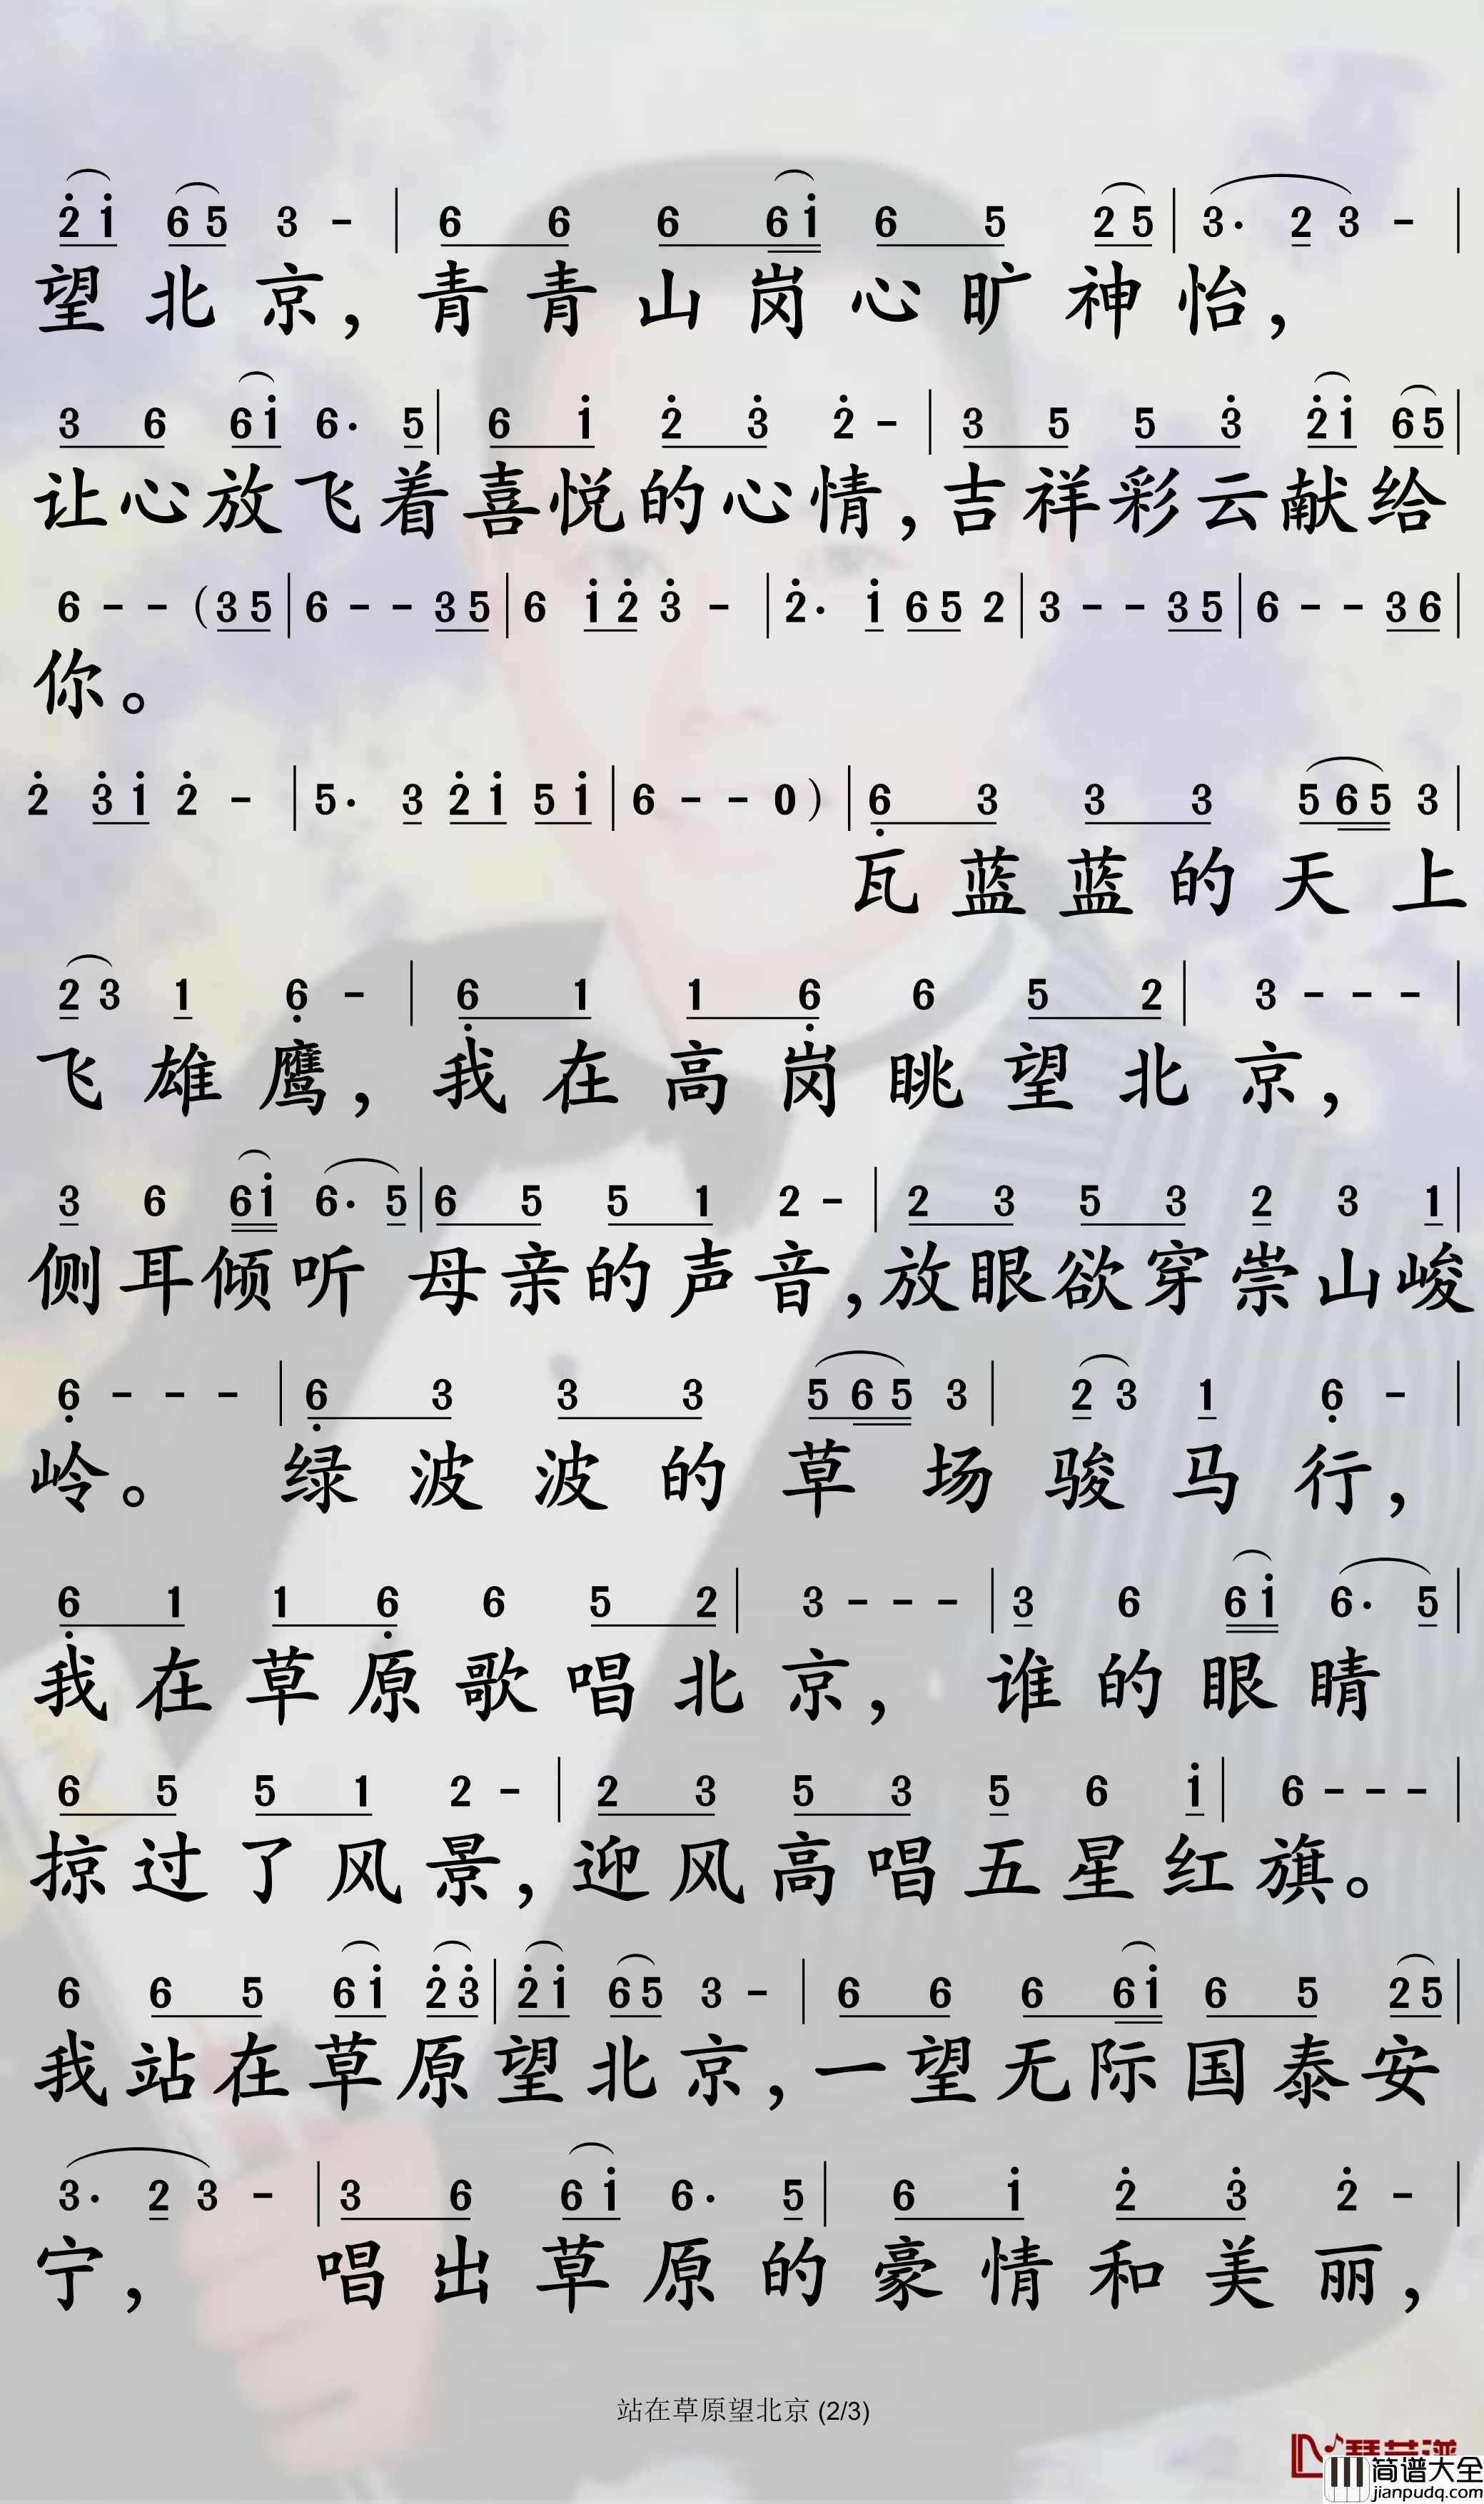 2̇ 1̇ 6 5 3 - | 6 6 6 6 1̇ 6 5 2 5 | 3· 2 3 - |
望北京，青青山岗心旷神怡，
3 6 6 1̇ 6· 5 | 6 1̇ 2̇ 3̇ 2̇ - | 3 5 5 3̇ 2̇ 1̇ 6 5 |
让心放飞着喜悦的心情，吉祥彩云献给
6 - - (3 5 | 6 - - 3 5 | 6 1̇ 2̇ 3̇ - | 2̇· 1̇ 6 5 2 | 3 - - 3 5 | 6 - - 3 6 |
你。
2̇ 3̇ 1̇ 2̇ - | 5· 3 2̇ 1̇ 5 1̇ | 6 - - 0) | 6̣ 3 3 3 5 6 5 3 |
瓦蓝蓝的天上
2 3 1 6̣ - | 6̣ 1 1 6̣ 6 5 2 | 3 - - - |
飞雄鹰，我在高岗眺望北京，
3 6 6 1̇ 6· 5 | 6 5 5 1 2 - | 2 3 5 3 2 3 1 |
侧耳倾听 母亲的声音，放眼欲穿崇山峻
6̣ - - - | 6̣ 3 3 3 5 6 5 3 | 2 3 1 6̣ - |
岭。绿波波的草场骏马行，
6̣ 1 1 6̣ 6 5 2 | 3 - - - | 3 6 6 1̇ 6· 5 |
我在草原歌唱北京，谁的眼睛
6 5 5 1 2 - | 2 3 5 3 5 6 1̇ | 6 - - - |
掠过了风景，迎风高唱五星红旗。
6 6 5 6 1̇ 2̇ 3̇ | 2̇ 1̇ 6 5 3 - | 6 6 6 6 1̇ 6 5 2 5 |
我站在草原望北京，一望无际国泰安
3· 2 3 - | 3 6 6 1̇ 6· 5 | 6 1̇ 2̇ 3̇ 2̇ - |
宁，唱出草原的豪情和美丽，
站在草原望北京 (2/3)
简谱大全
jianpudq.com